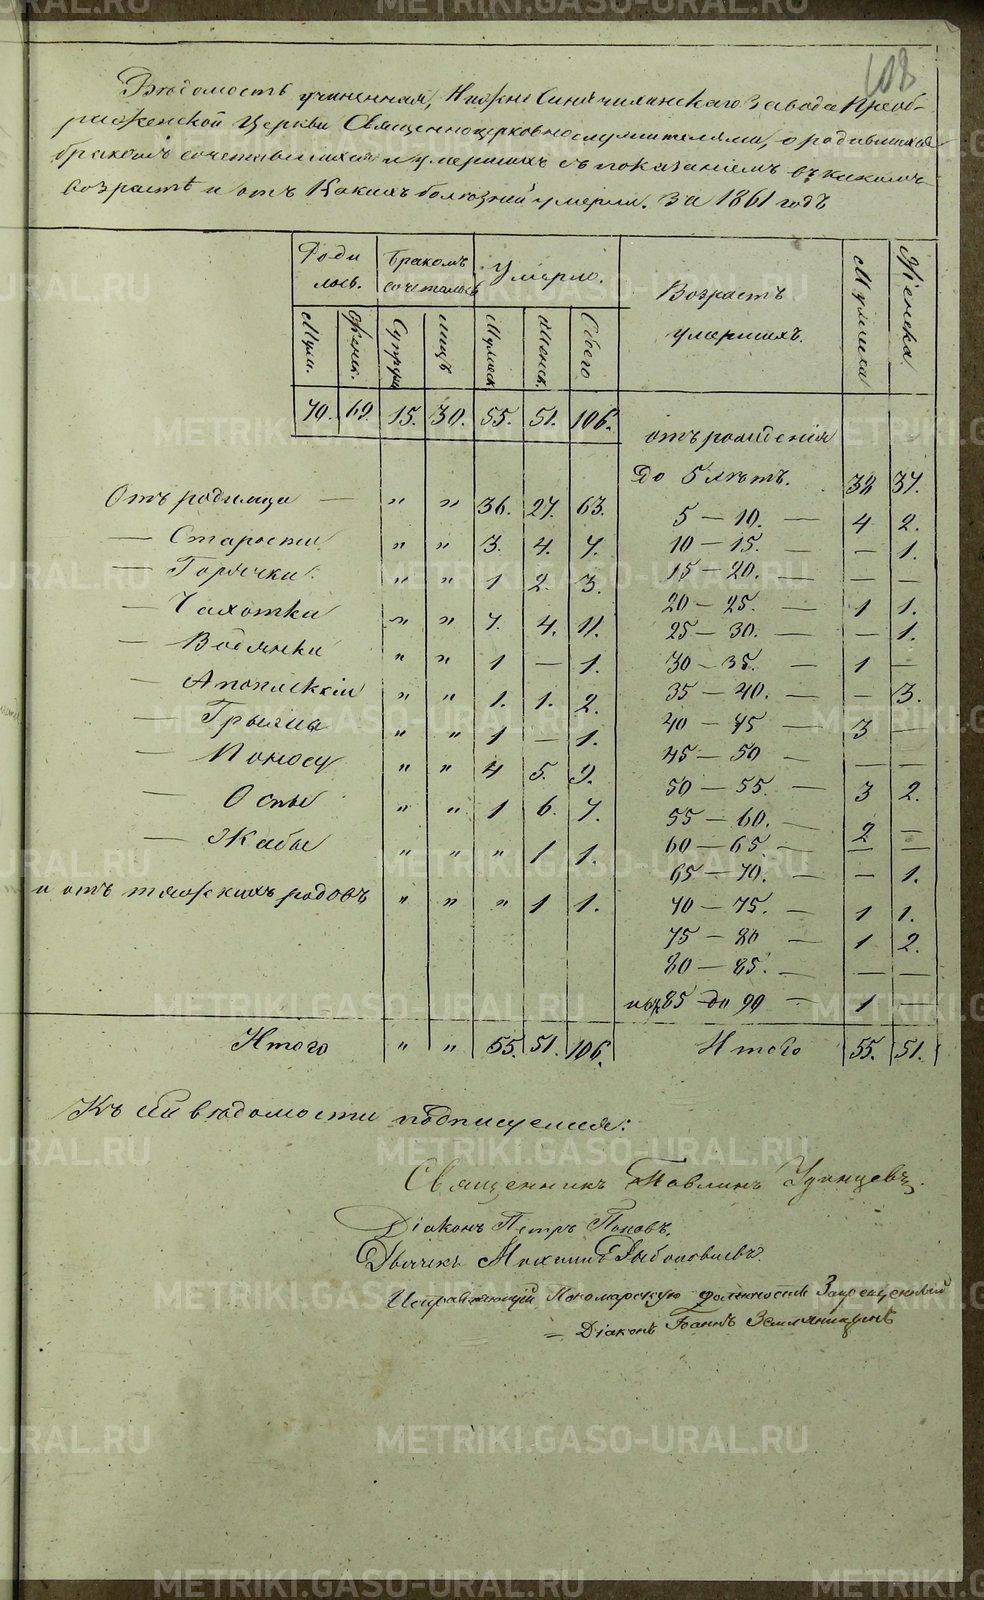 108
Вѣдомость учиненная, Нижне Синячихинскаго Завода Преоб-
раженской Церкви Священноцерковнослужителями, о родившихся
бракомъ сочетавшихся и умершихъ съ показаніемъ въ какомъ
возрастѣ и отъ какихъ болѣзней умерли. За 1861 годъ
Роди лось. Бракомъ сочеталось Умерло. Возрастъ умершихъ. Мужска Женска
Муж. Женск. Супруж лицъ Мужск Женск. Обоего
70. 69. 15. 30. 55. 51. 106.
отъ рожденія
До 5 лѣтъ. 38 37.
Отъ родимца — " " 36. 27. 63.
5 — 10. — 4 2.
— Старости " " 3. 4. 7.
10 — 15. — — 1.
— Горячки. " " 1 2. 3.
15 — 20. — — —
— Чахотки " " 7. 4. 11.
20 — 25. — 1 1.
25 — 30. — — 1.
— Водянки " " 1 — 1.
30 — 35. — 1 —
— Апоплексіи " " 1. 1. 2.
35 — 40. — — 3.
— Грыжи " " 1 — 1.
40 — 45 — 3 —
— Поносу " " 4 5. 9.
45 — 50 — — —
50 — 55. — 3 2.
— Оспы " " 1 6. 7.
55 — 60. — 2 —
— Жабы " " " 1 1.
60 — 65 — — —
65 — 70. — — 1.
и отъ тяжскихъ родовъ " " " 1 1.
70 — 75. — 1 1.
75 — 80 — 1 2.
80 — 85. — — —
85 — до 90 — 1 —
Итого " " 55. 51. 106. Итого 55. 51.
Къ сей вѣдомости подписуемся:
Священникъ Павлинъ Удинцевъ.
Діаконъ Петръ Поповъ.
Дьячекъ
Исправляющій Пономарскую должность Запрещенный
— Діаконъ Іоаннъ Земляницынъ
METRIKI.GASO-URAL.RU